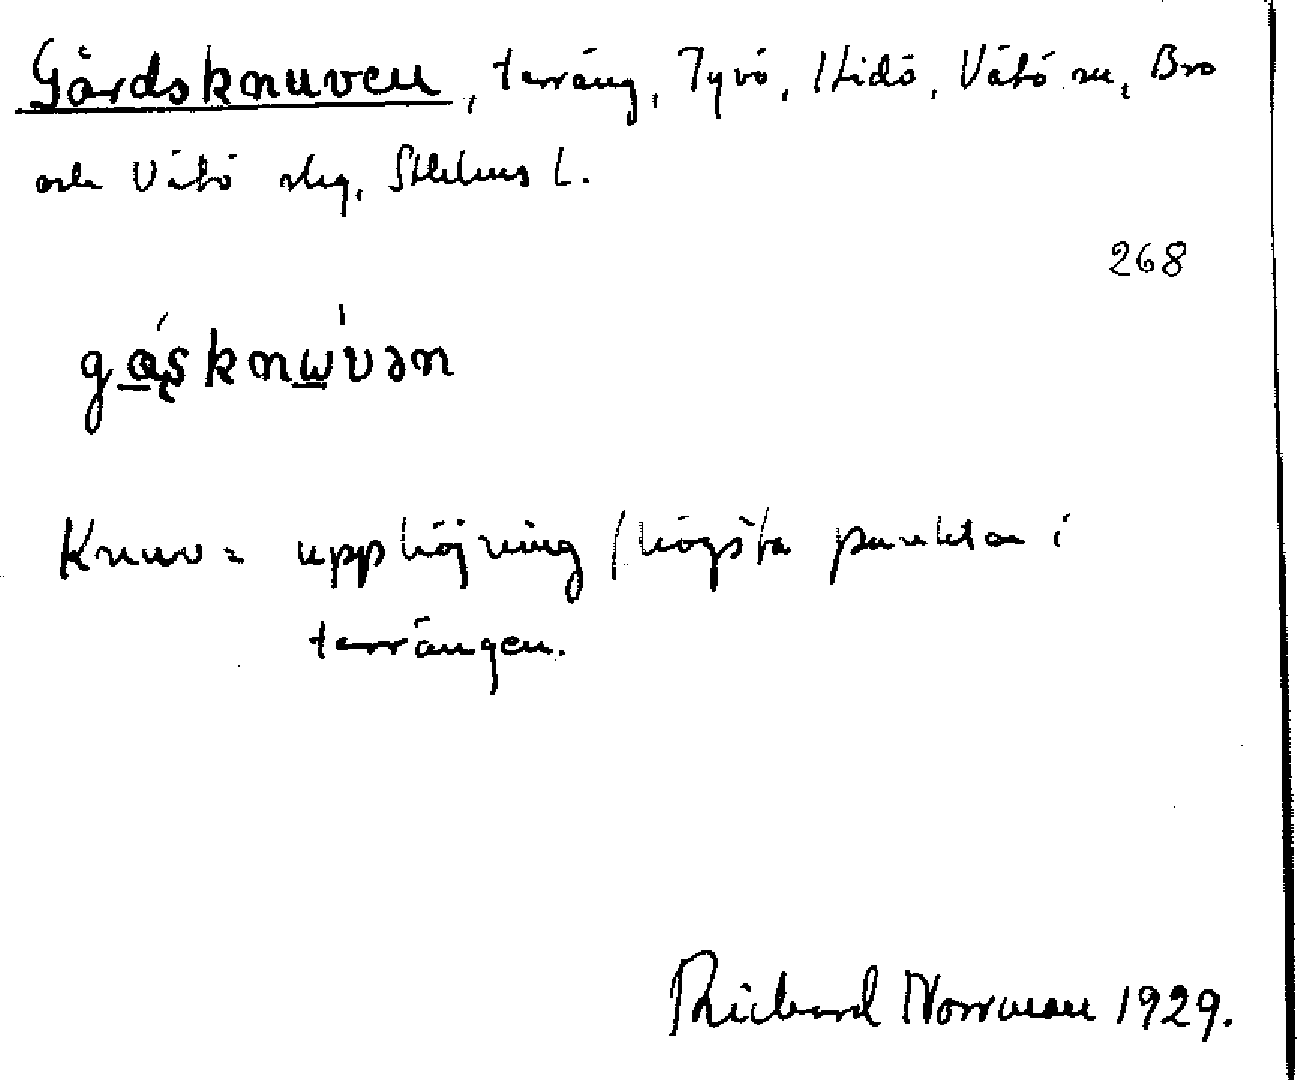 Gårdsknuven, terräng, Tyvö, Ilidö, Vätö sn, Bro
och Vätö skg, Sthlms L.
268
gåsknɯvən
Knuv = upphöjning / högsta punkten i
terrängen.
Richard Norrman 1929.